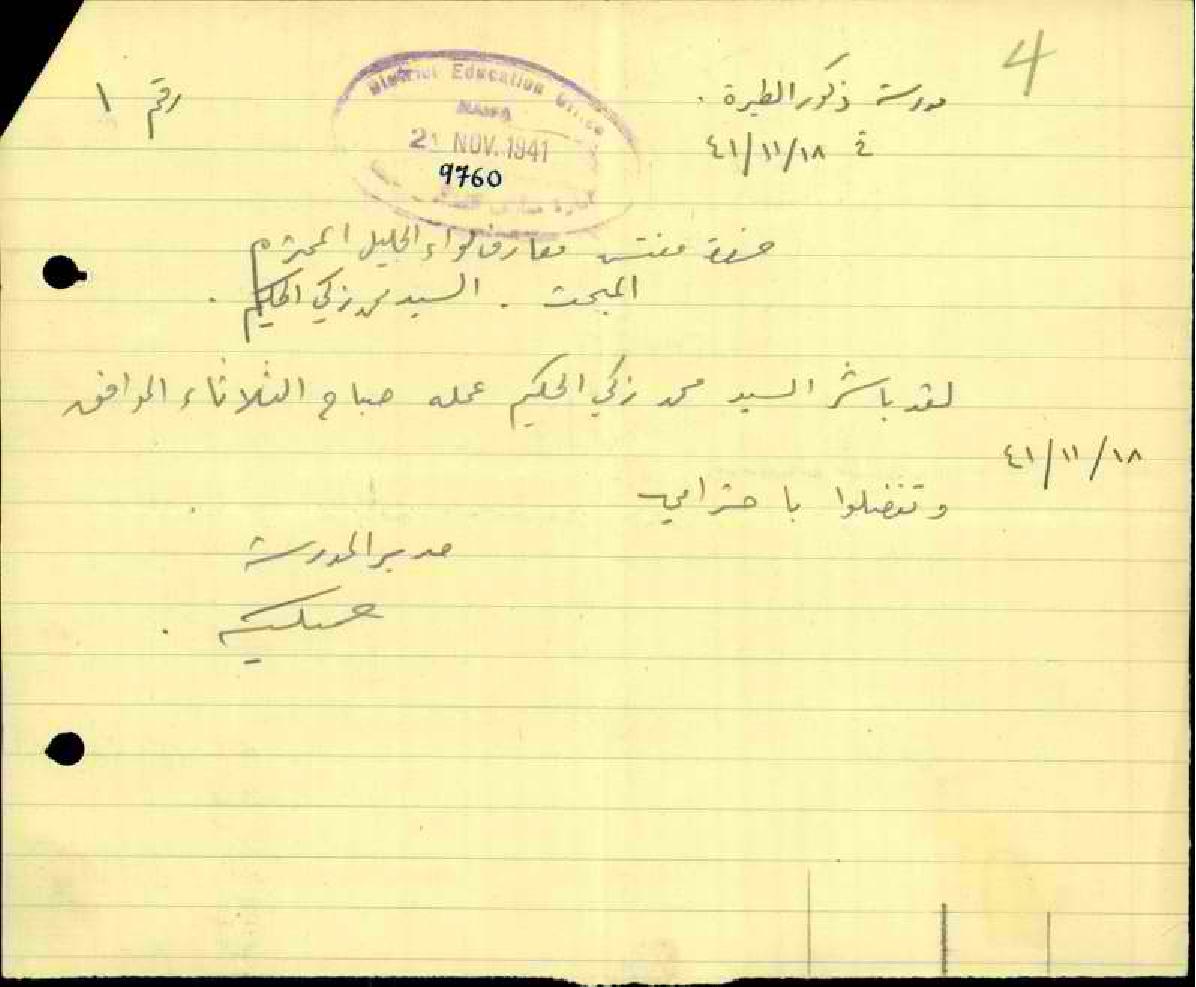 4
مدرسة ذكور الطيرة .
رقم ١
في ٤١/١١/١٨
District Education Office
HAIFA
21 NOV. 1941
9760
إدارة معارف
حضرة مفتش معارف لواء الجليل المحترم
المبحث . السيد محمد زكي الحكيم .
لقد باشر السيد محمد زكي الحكيم عمله صباح الثلاثاء الموافق
٤١/١١/١٨
وتفضلوا باحترامي
مدير المدرسة